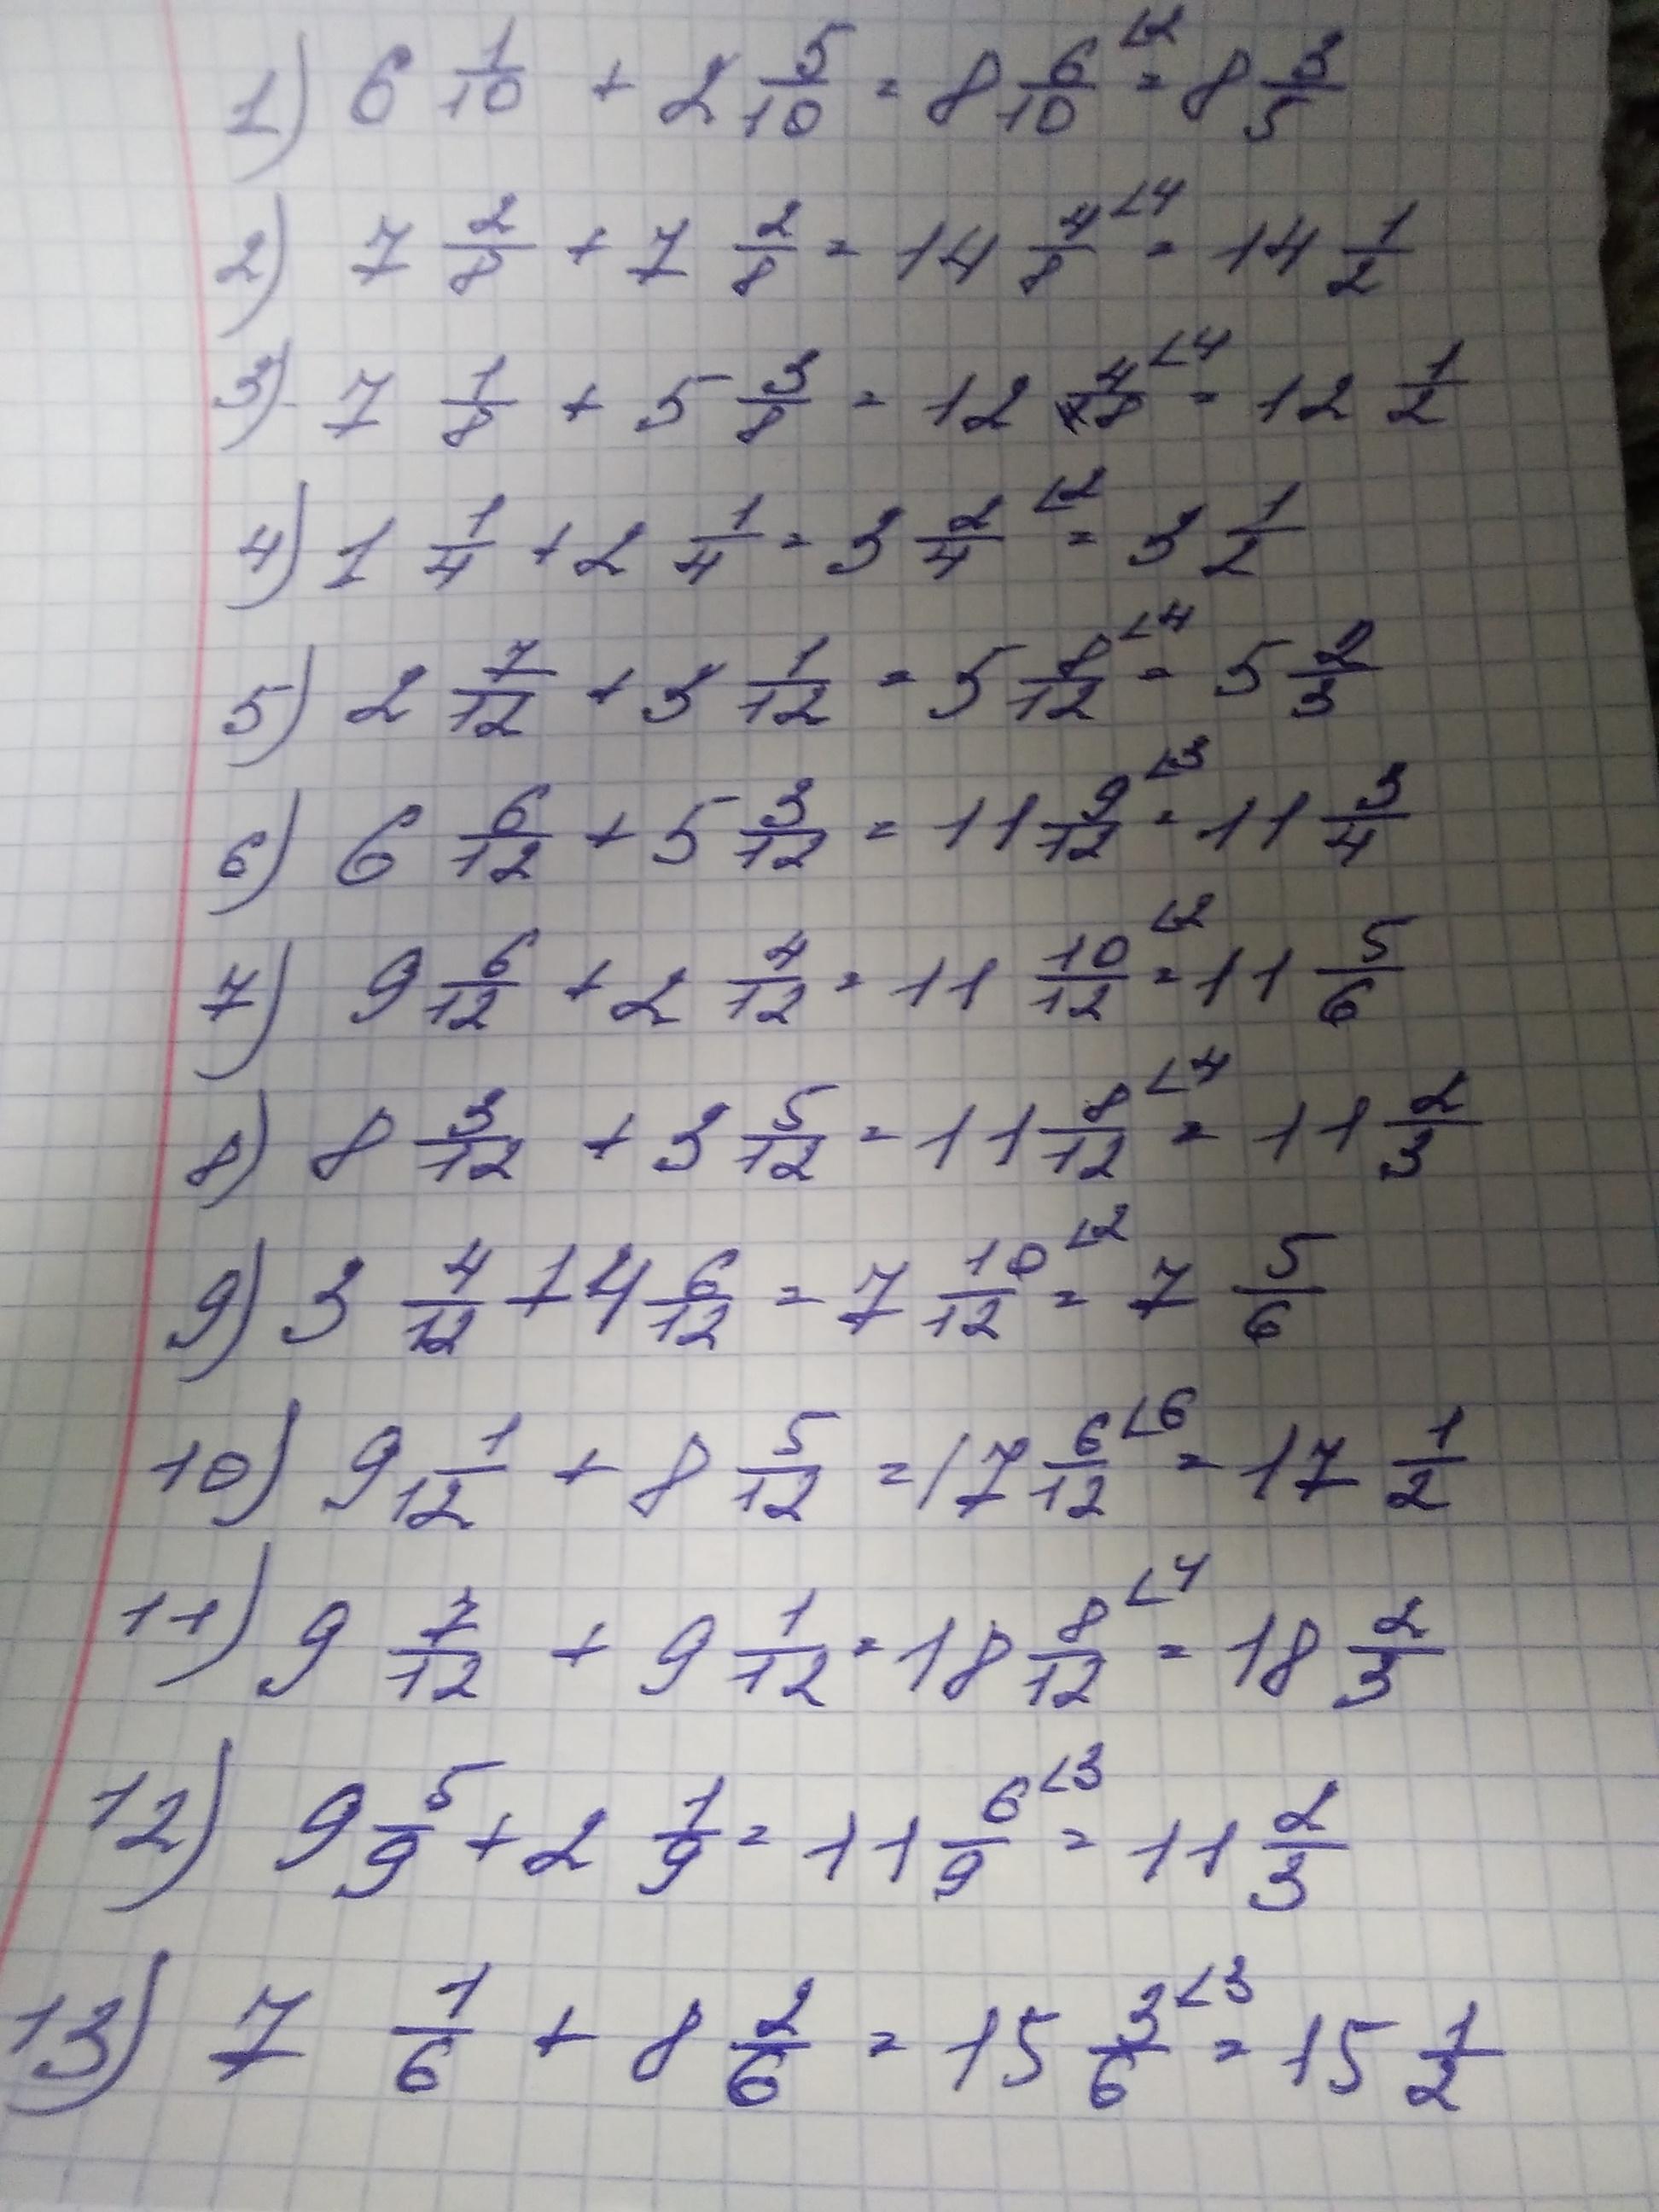 1) 6 1/10 + 2 5/10 = 8 6/10 ∠2 = 8 3/5
2) 7 2/8 + 7 2/8 = 14 4/8 ∠4 = 14 1/2
3) 7 1/8 + 5 3/8 = 12 4/8 ∠4 = 12 1/2
4) 1 1/4 + 2 1/4 = 3 2/4 ∠2 = 3 1/2
5) 2 7/12 + 3 1/12 = 5 8/12 ∠4 = 5 2/3
6) 6 6/12 + 5 3/12 = 11 9/12 ∠3 = 11 3/4
7) 9 6/12 + 2 4/12 = 11 10/12 ∠2 = 11 5/6
8) 8 3/12 + 3 5/12 = 11 8/12 ∠4 = 11 2/3
9) 3 4/12 + 4 6/12 = 7 10/12 ∠2 = 7 5/6
10) 9 1/12 + 8 5/12 = 17 6/12 ∠6 = 17 1/2
11) 9 7/12 + 9 1/12 = 18 8/12 ∠4 = 18 2/3
12) 9 5/9 + 2 1/9 = 11 6/9 ∠3 = 11 2/3
13) 7 1/6 + 8 2/6 = 15 3/6 ∠3 = 15 1/2